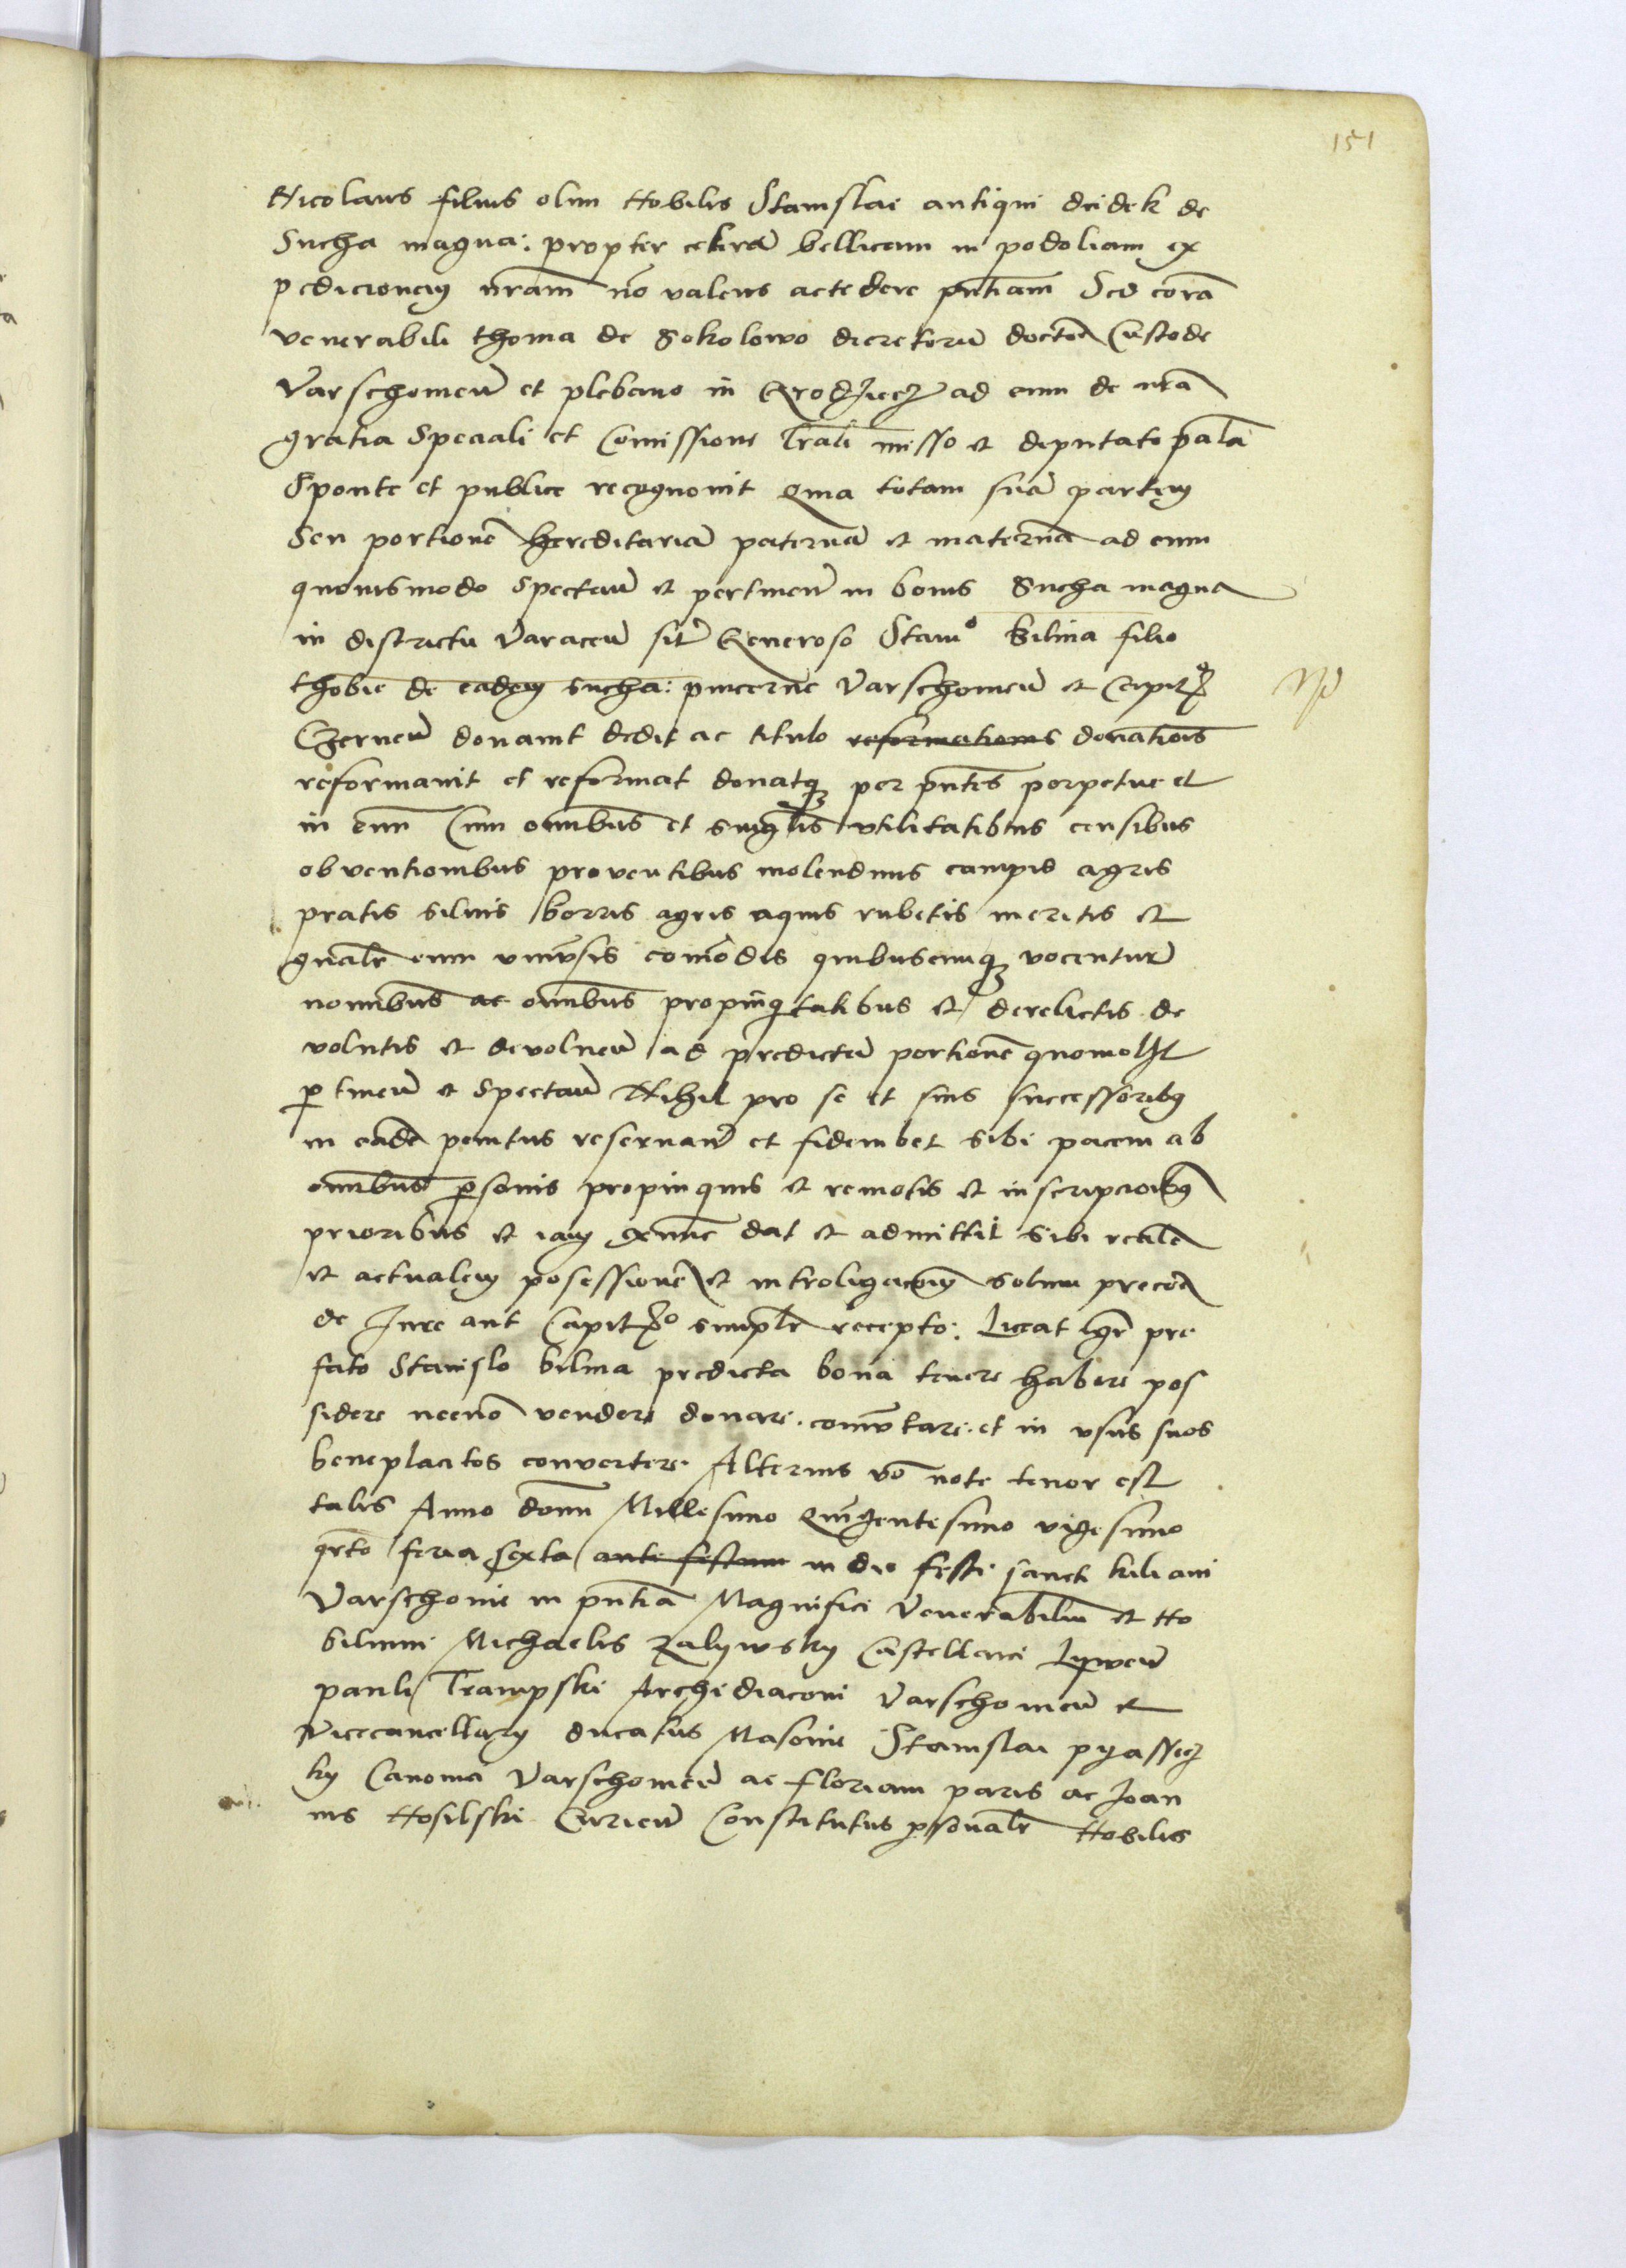 151
Nicolaus filius olim Nobilis Stanislai antiqui dzidek de
Sucha magna: propter celerā bellicam in podoliam ex
pedicionem nram̄ nō valens accedere pn̄tiam Sed corā
venerabili thoma de Sokolowo decretorū doctore Custode
Varschouieñ et plebano in Grodziecz ad eum de nr̄a
gratia Speciali et Comissione Lr̄ali misso et deputato palā
Sponte et publice recognouit quia totam suā partem
Seu portionē hereditariā paternā et maternā ad eum
quouismodo Spectañ et pertineñ in bonis Sucha magna
in districtu Varaceñ sit̄ Generoso Stanisº Bilina filio
thobie de eadem sucha: pincerne Varschouieñ et Capit
Czerneñ donauit dedit ac titulo reformationis donationis
reformauit et reformat donatqꝫ per pn̄tes perpetue et
in euū Cum omībus et singl̄is vtilitatibus censibus
obventionibus proventibus molendinis campis agris
pratis siluis borris agris aquis rubetis meritis et
gn̄alr̄ cum vniūsis comōdis quibuscumqꝫ vocentur
nominibus ac omībus propinqitatibus et derelictis de
volutis et devolueñ ad predictā portionē quomolꝫt
ꝑtineñ et Spectañ Nihil pro se et suis successoribꝫ
in eadē penitus reseruañ et fideiubet sibi pacem ab
omībus ꝑsonis propinquis et remotis et inscripcioibꝫ
prioribus et iam exnūc dat et admittit sibi realē
et actualem posessionē et introligacōem solum precōe
de Jure aut Capitº simplr̄ recepto: Liceat igr̄ pre
fato Stanislo bilina predicta bona tenere habere pos
sidere necnō vendere donare. comūtare. et in vsus suos
beneplacitos convertere Alterius v̄o note tenor est
talis Anno domi Millesimo Quīgentesimo vigesimo
qrto feria Sexta ante festum in die festi sancti kiliani
Varschouie in pn̄tia Magnifici Venerabiliū et No
bilium Michaelis Zalywsky Castellani Lyweñ
pauli Trampski Archidiaconi Varschouieñ et
Vicecancellarÿ ducatus Masouie Stanislai pyassecz
ky Canonici Varschouieñ ac floriani paris ac Joan
nis Nosilski Curieñ Constitutus ꝑsonalr̄ Nobilis